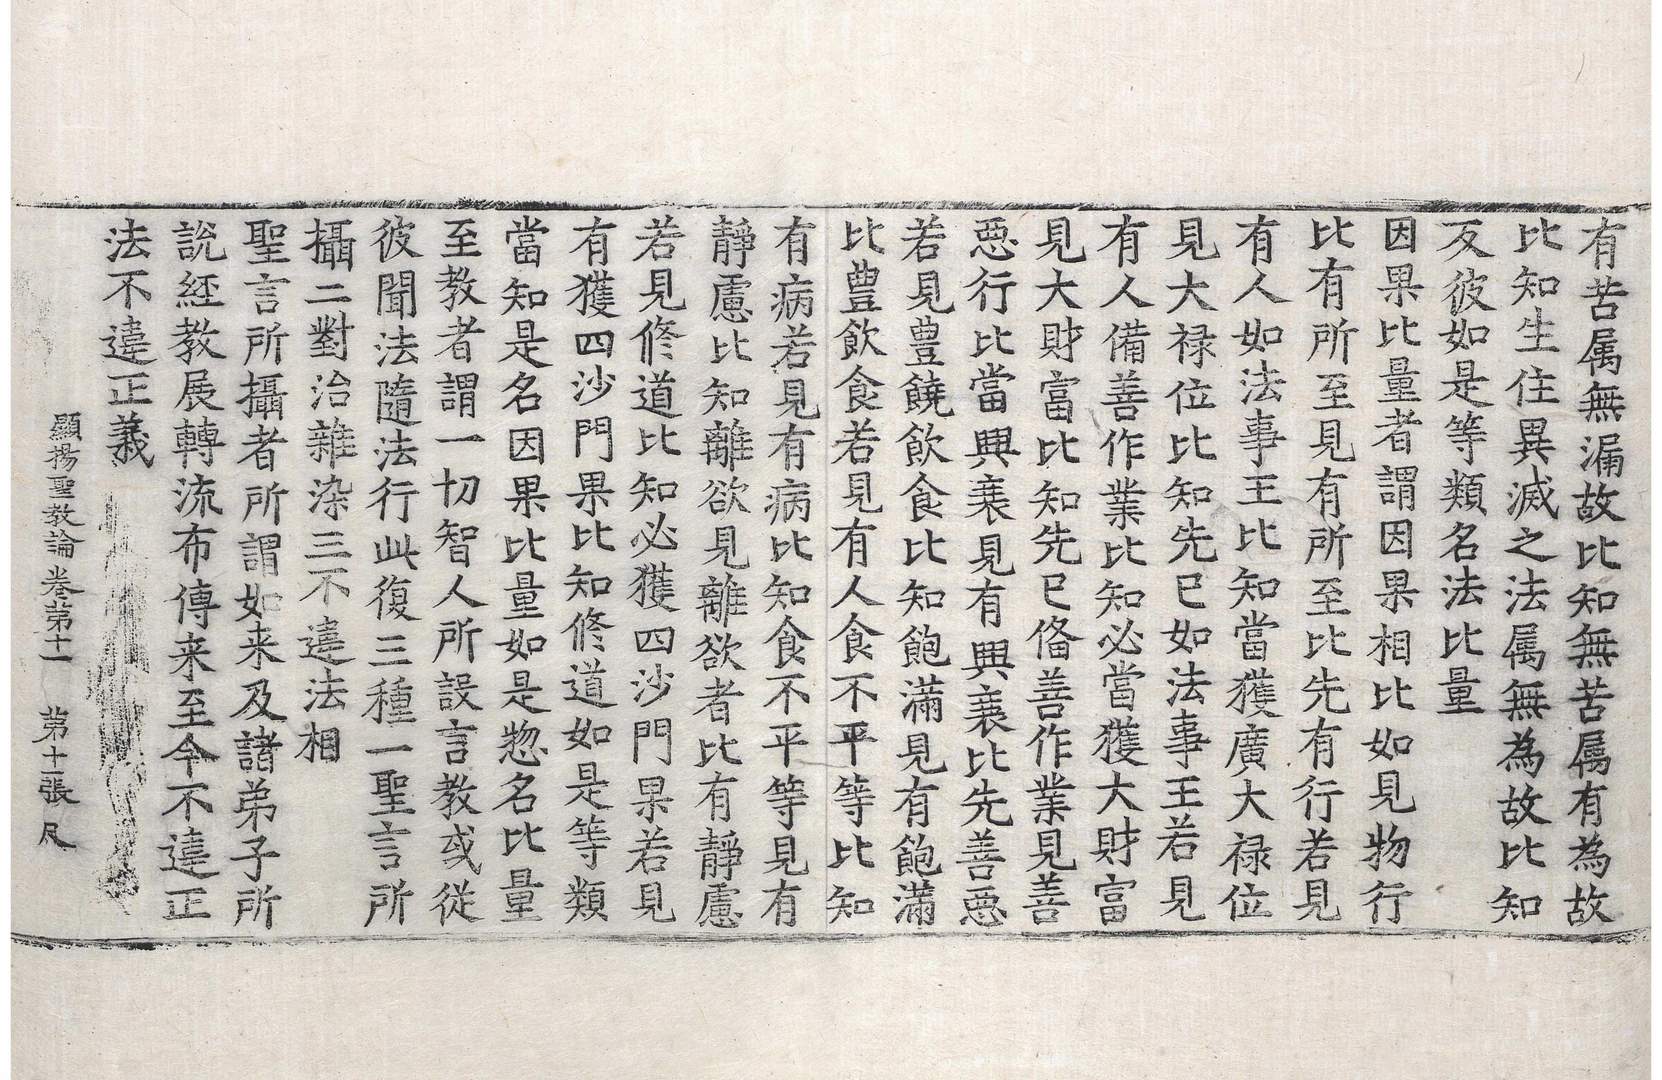 有苦属無漏故比知無苦属有為故
比知生住異滅之法属無為故比知
反彼如是等類名法比量
因果比量者謂因果相比如見物行
比有所至見有所至比先有行若見
有人如法事王比知當獲廣大禄位
見大禄位比知先已如法事王若見
有人備善作業比知必當獲大財富
見大財富比知先已俻善作業見善
惡行比當興衰見有興衰比先善惡
若見豊饒飲食比知飽滿見有飽滿
比豊飲食若見有人食不平等比知
有病若見有病比知食不平等見有
靜慮比知離欲見離欲者比有靜慮
若見修道比知必獲四沙門果若見
有獲四沙門果比知修道如是等類
當知是名因果比量如是惣名比量
至教者謂一切智人所說言教或從
彼聞法隨法行此復三種一聖言所
攝二對治雜染三不違法相
聖言所攝者所謂如来及諸弟子所
說經教展轉流布傳来至今不違正
法不違正義
顯揚聖教論卷第十一 第十一張 尺